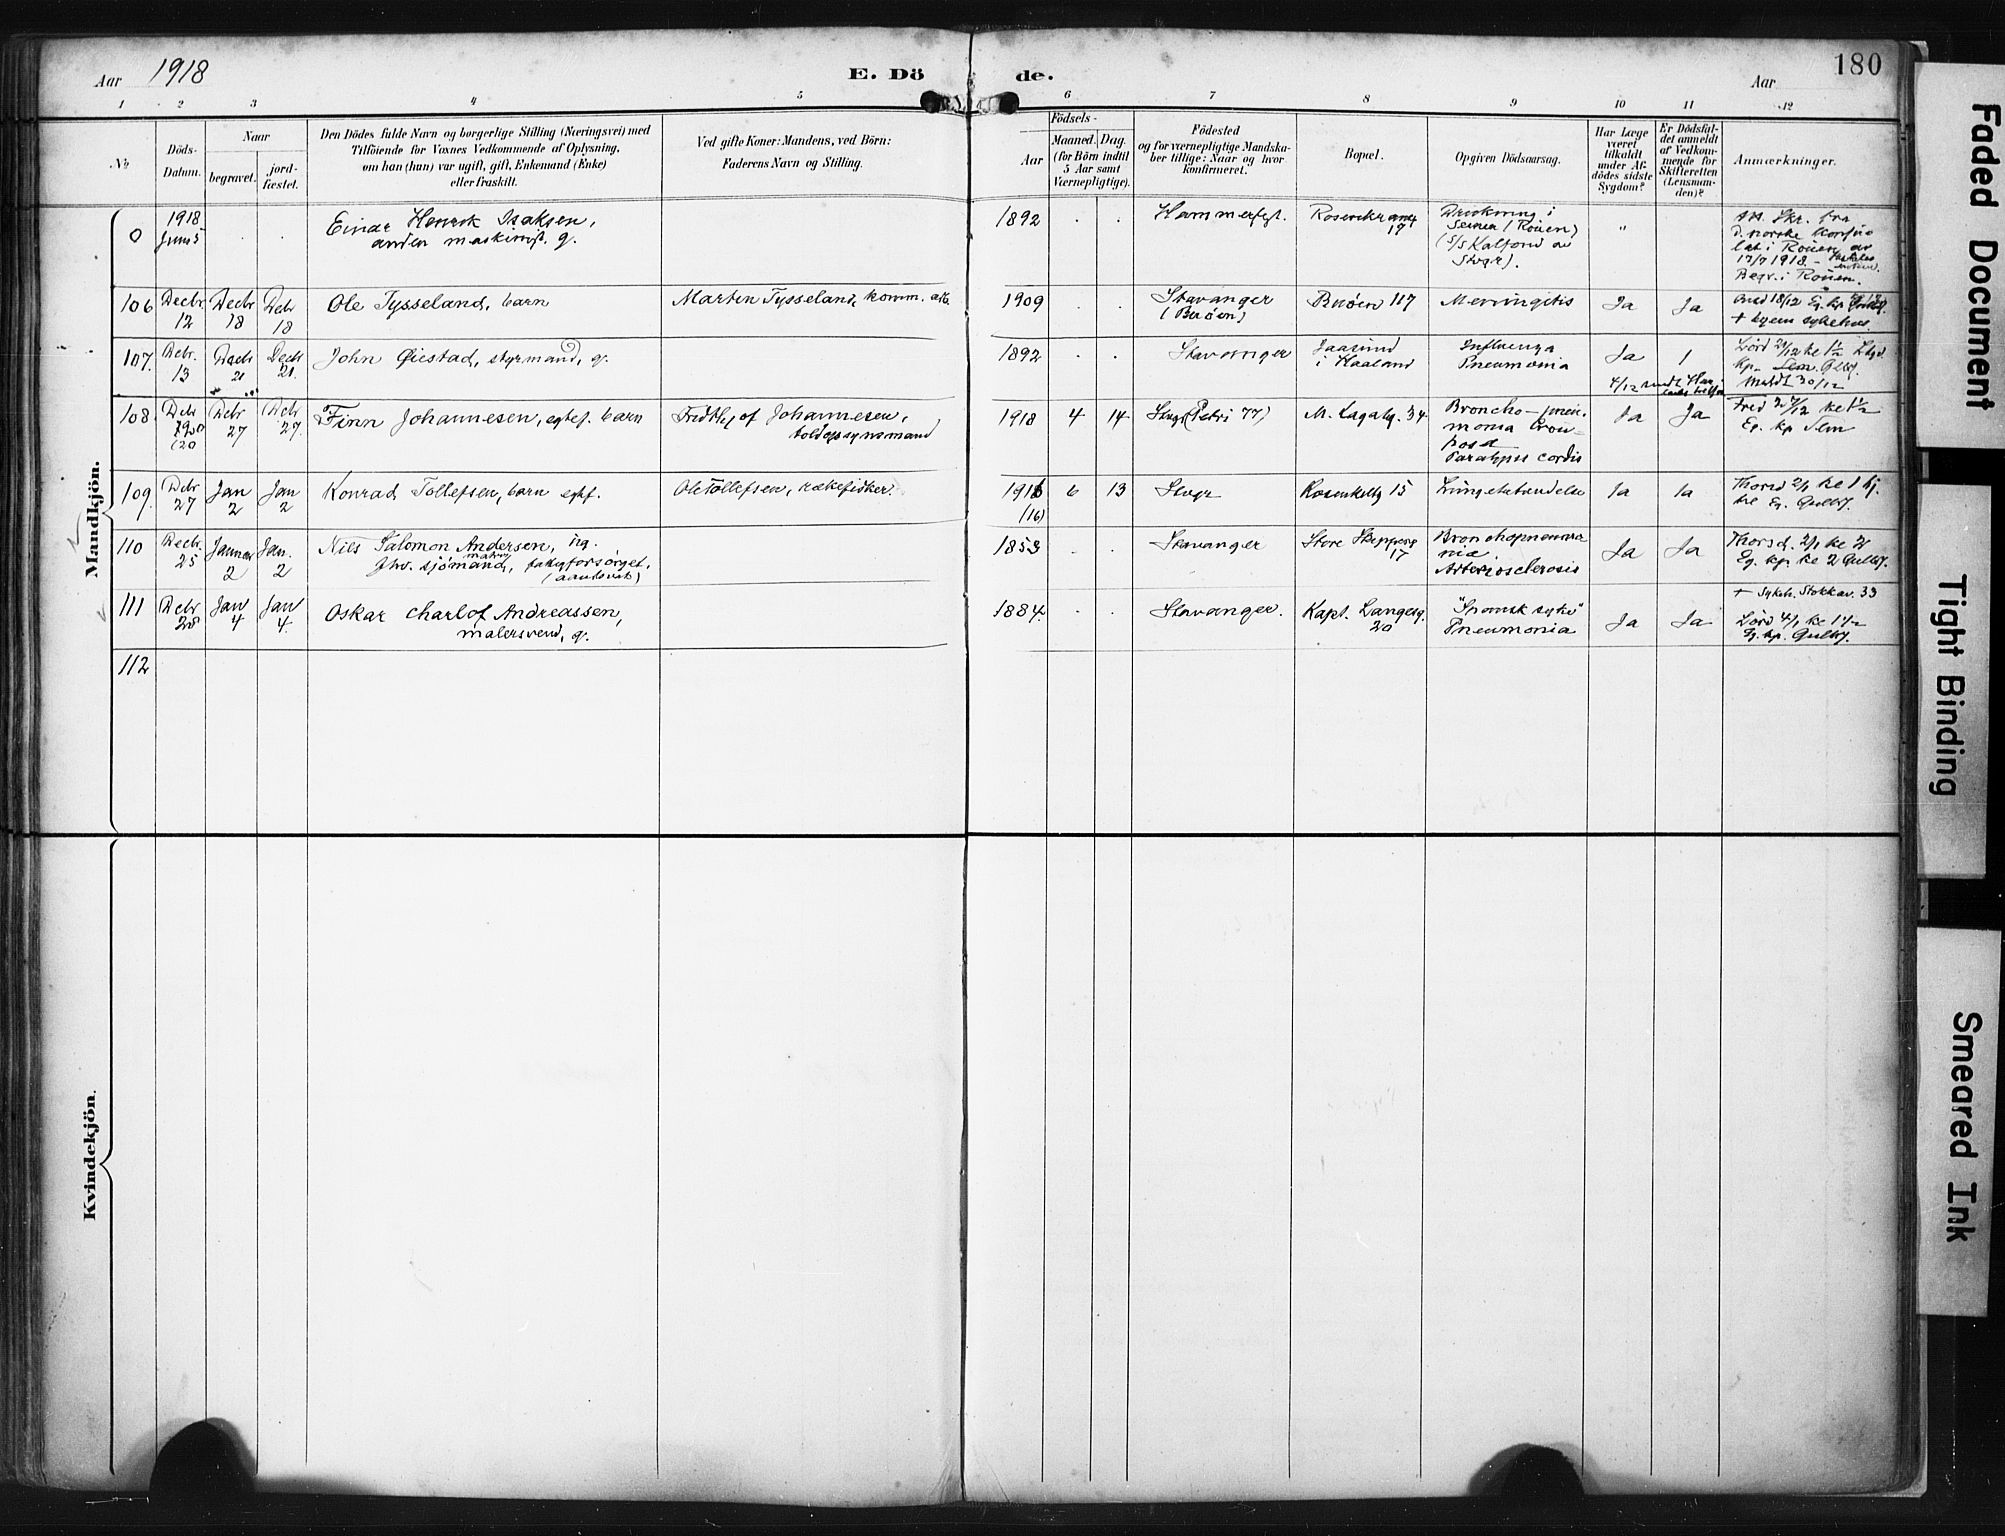 Aar 1918
E. Dö
de.
Aar
180
1 2 3 4 5 6 7 8 9 10 11 12
No
Döds-
Datum.
Naar
begravet.
jord-
fæstet.
Den Dödes fulde Navn og borgerlige Stilling (Næringsvei) med
Tilföiende for Voxnes Vedkommende af Oplysning,
om han (hun) var ugift, gift, Enkemand (Enke)
eller fraskilt.
Ved gifte Koner: Mandens, ved Börn:
Faderens Navn og Stilling.
Födsels-
Aar
Maaned.
Dag.
(for Börn indtil
5 Aar samt
Værnepligtige).
Födested
og for værnepligtige Mandska-
ber tillige: Naar og hvor
konfirmeret.
Bopæl.
Opgiven Dödsaarsag.
Har Læge
været
tilkaldt
under Af-
dödes sidste
Sygdom?
Er Dödsfal-
det anmeldt
af Vedkom-
mende for
Skifteretten
(Lensman-
den)?
Anmærkninger.
Mandkjön.
0
1918
Juni 5
Einar Henrik Isaksen,
anden maskinist. g.
1892
Hammerfest.
Rosenkrantzg
17
Drukning i
Seinen (Rouen)
(S/S Kalfond av
Stvgr).
"
Skr. fra
D. norske konsu
lat i Rouen av
17/7 1918 -
Begr. i Rouen.
106
Decbr.
12
Decbr
18
Debr
18
Ole Tysseland, barn
Marten Tysseland, komm. arb
1909
Stavanger
(Buøen)
Buøen 117
Meningitis
Ja
Ja
Onsd 18/12 Eg. kp
+ byens sykehus.
107.
Debr.
13
Decbr
21
Decbr
21.
John Øiestad, styrmand, g.
1892
Stavanger
Jaasund
i Haaland
Influenza
Pneumonia
Ja
Lörd 21/12 kl 1½
kp.
Meldt 30/12
108.
Debr
20
Debr
27
Debr
27.
Finn Johannesen, egtef. barn
Fridthjof Johannesen,
toldopsynsmand
1918
4
14
Stvgr (Petri 77)
M. Lagabg. 34
Broncho-pneu-
monia Crou-
posa
Paralysis cordis
Ja
Ja
Fred 27/12 kl 1½
Eg. kp
109.
Debr
27
Jan
2
Jan
2
Konrad Tollefsen, barn egtf.
Ole Tollefsen, rækefisker.
1916
(16)
6
13
Stvgr
Rosenkeltg 15
Lungebetændelse
Ja
Ja
Thorsd 2/1 kl 1
110
Decbr.
25
Januar
2
Jan.
2
Nils Salomon Andersen, ug.
fhv. sjömand, fattigforsørget,
1853
Stavanger
Store Skipperg
17
Bronchopneumo
nia
Arteriosclerosis
Ja
Ja
Thorsd. 2/1 kl 2
Eg. kp. kl 2
111
Debr
28
Jan
4
Jan
4.
Oskar Charlof Andreassen,
malersvend, g.
1884.
Stavanger.
Kapt. Langesg.
20
"Spansk syke"
Pneumonia
Ja
Ja
+ Sykeh. Stokkav. 33
Lörd 4/1 kl 1½
Eg. kp.
112
Kvindekjön.
Faded Document
Tight Binding
Smeared Ink